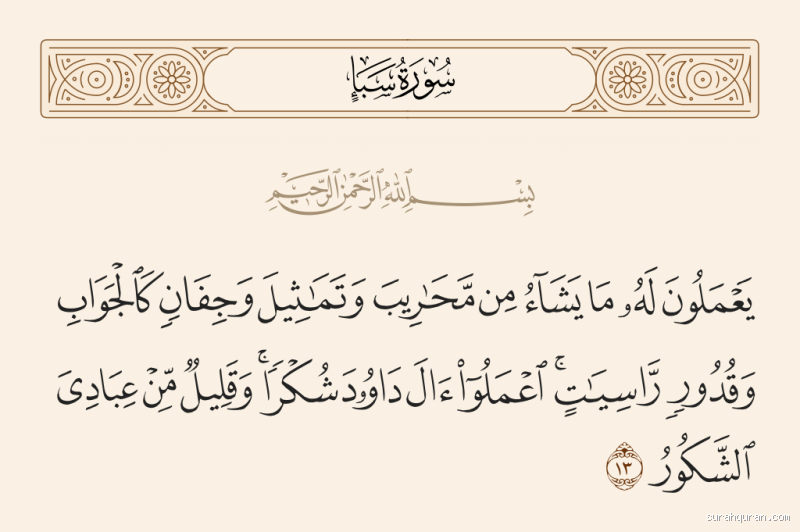 سُورَةُ سَبَإٍ
بِسْمِ ٱللَّهِ ٱلرَّحْمَٰنِ ٱلرَّحِيمِ
يَعْمَلُونَ لَهُۥ مَا يَشَآءُ مِن مَّحَٰرِيبَ وَتَمَٰثِيلَ وَجِفَانٍ كَٱلْجَوَابِ
وَقُدُورٍ رَّاسِيَٰتٍ ۚ ٱعْمَلُوٓا۟ ءَالَ دَاوُۥدَ شُكْرًا ۚ وَقَلِيلٌ مِّنْ عِبَادِىَ
ٱلشَّكُورُ ١٣
surahquran.com